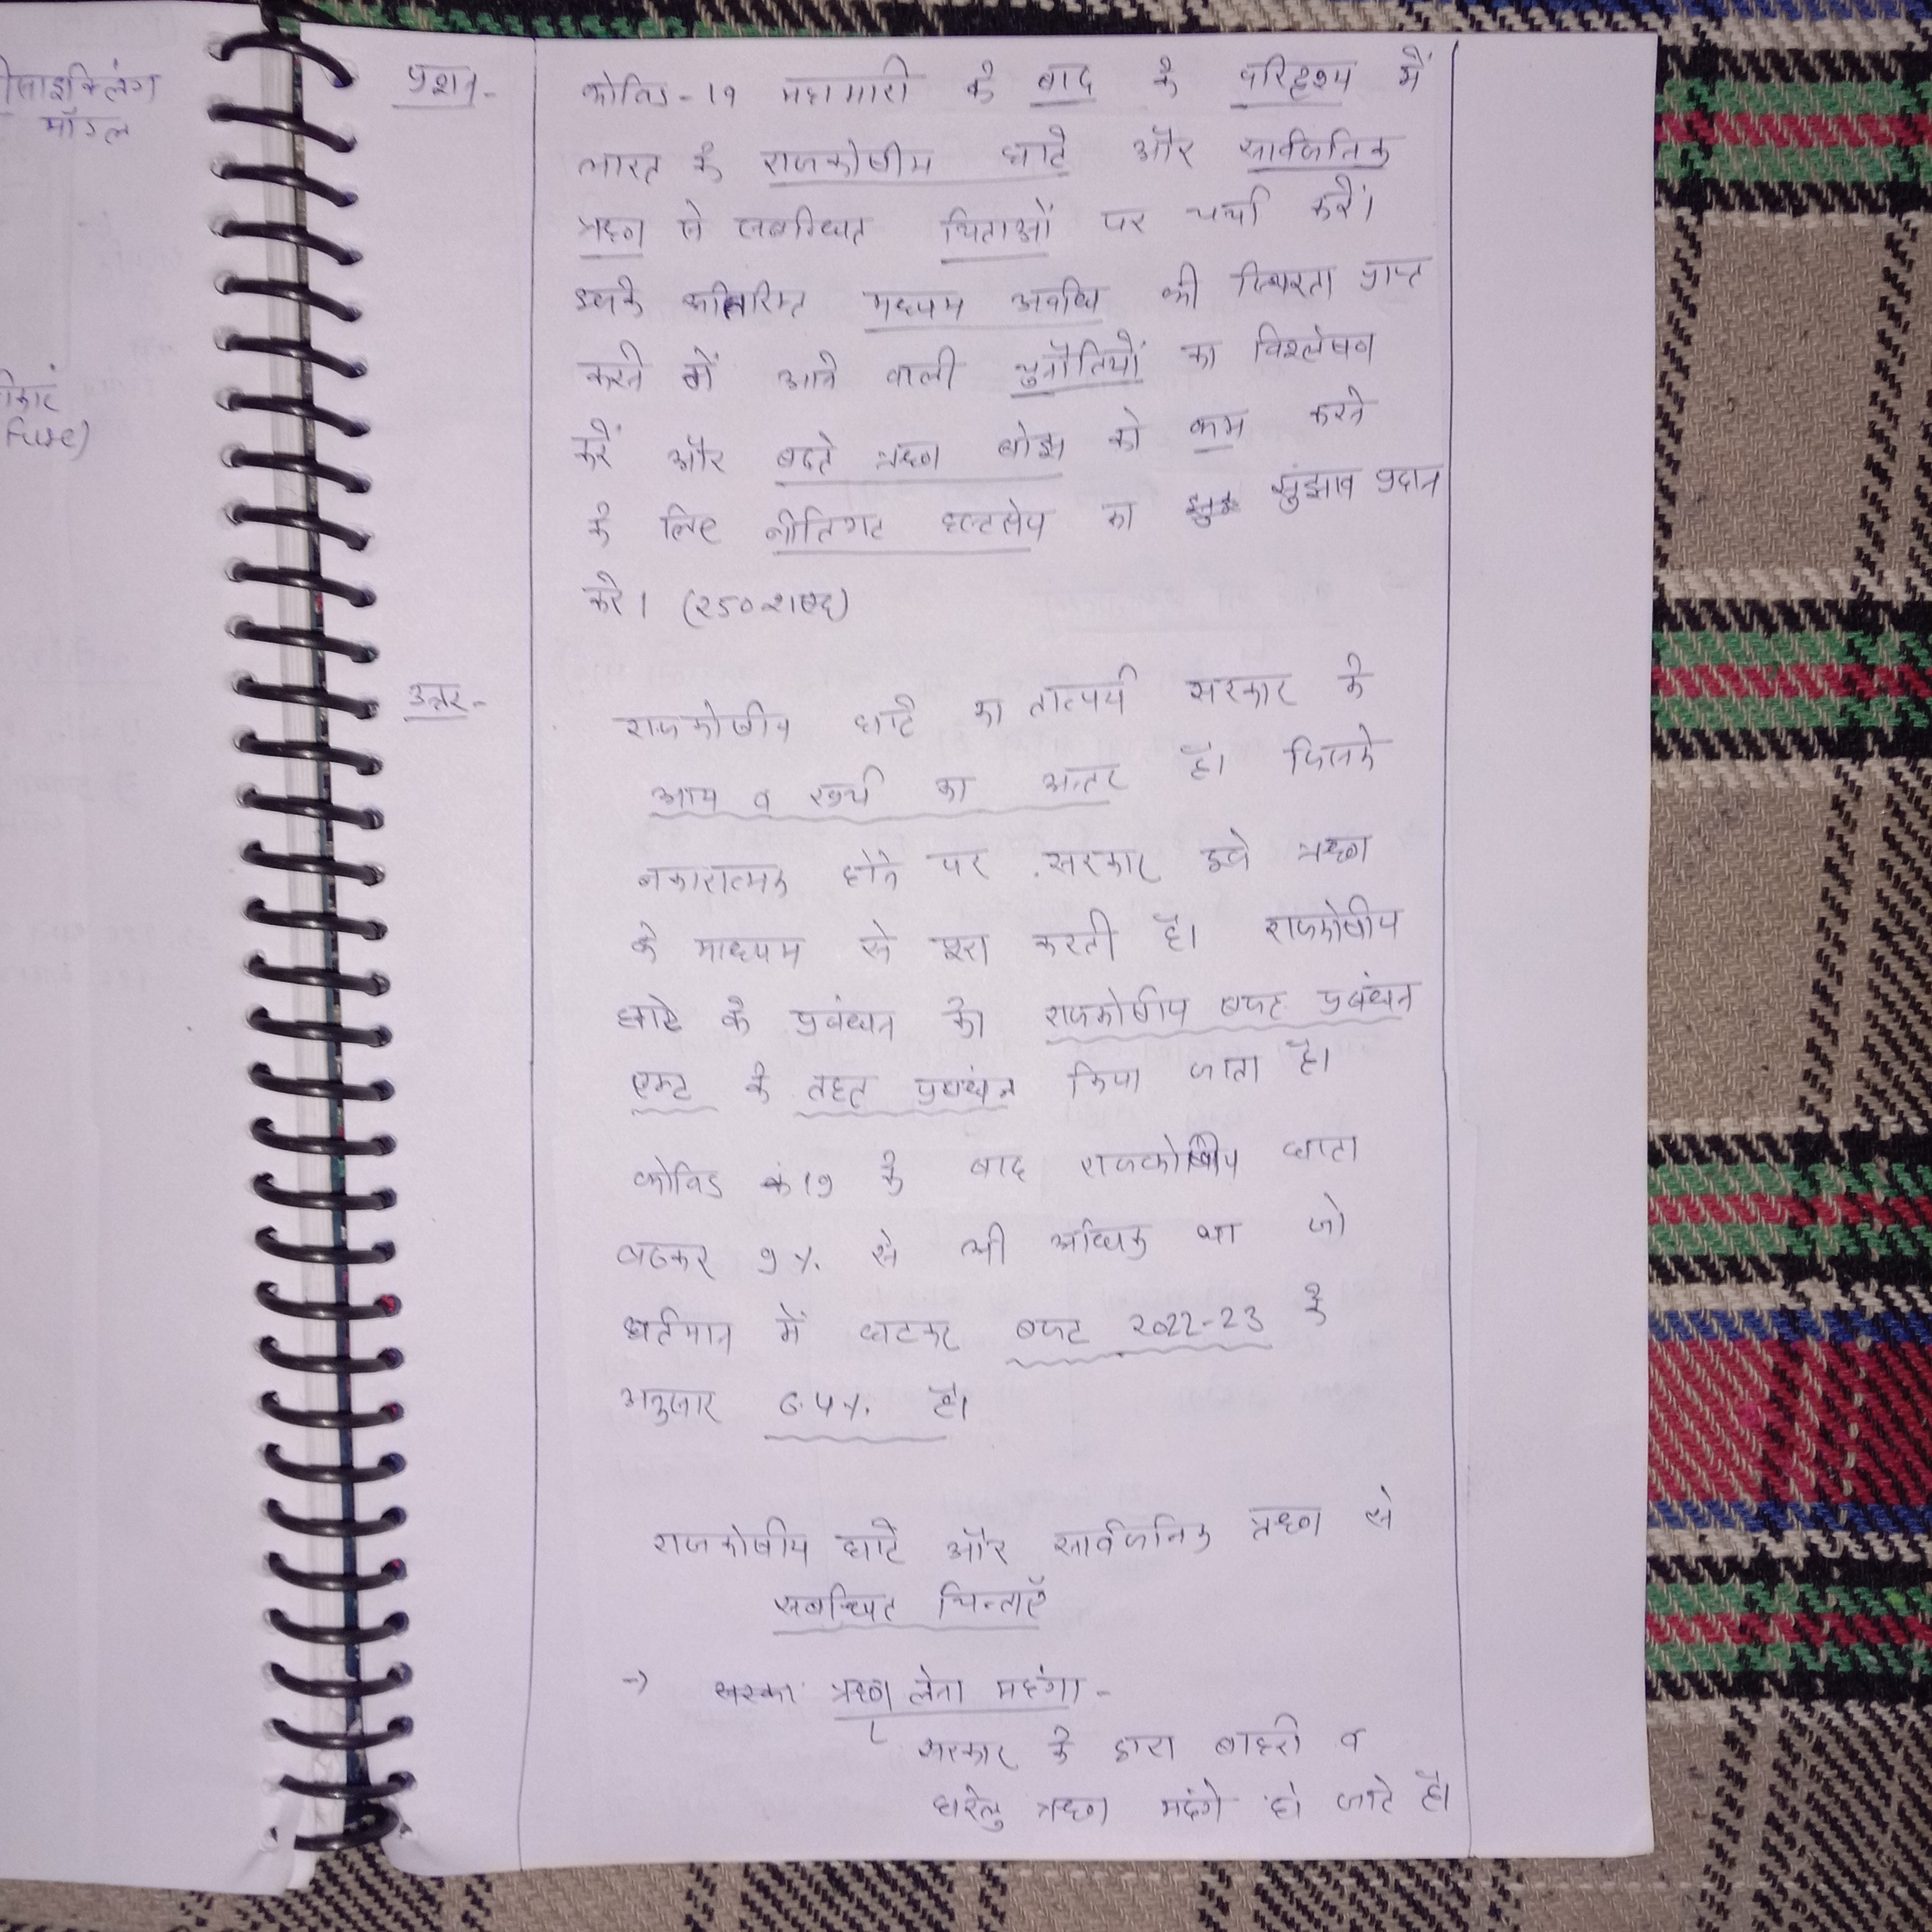 साइक्लिंग
मॉडल
Fuse)
प्रश्न- कोविड-19 महामारी के बाद के परिदृश्य में
भारत के राजकोषीय घाटे और सार्वजनिक
ऋण से सबन्धित चिंताओं पर चर्चा करें।
इसके अतिरिक्त मध्यम अवधि की स्थिरता प्राप्त
करने में आने वाली चुनौतियों का विश्लेषण
करें और बढ़ते ऋण बोझ को कम करने
के लिए नीतिगत हस्तक्षेप का सुझाव प्रदान
करे। (250 शब्द)
उत्तर- राजकोषीय घाटे का तात्पर्य सरकार के
आय व खर्च का अन्तर है। जिसके
नकारात्मक होने पर सरकार इसे ऋण
के माध्यम से पूरा करती है। राजकोषीय
घाटे के प्रबंधन को राजकोषीय बजट प्रबंधन
एक्ट के तहत प्रबंधन किया जाता है।
कोविड 19 के बाद राजकोषीय घाटा
बढकर 9% से भी अधिक था जो
वर्तमान में घटकर बजट 2022-23 के
अनुसार 6.4% है।
राजकोषीय घाटे और सार्वजनिक ऋण से
सबन्धित चिन्ताएँ
→ ऋण लेना महंगा -
सरकार के द्वारा बाहरी व
घरेलु ऋण महंगे हो जाते है।